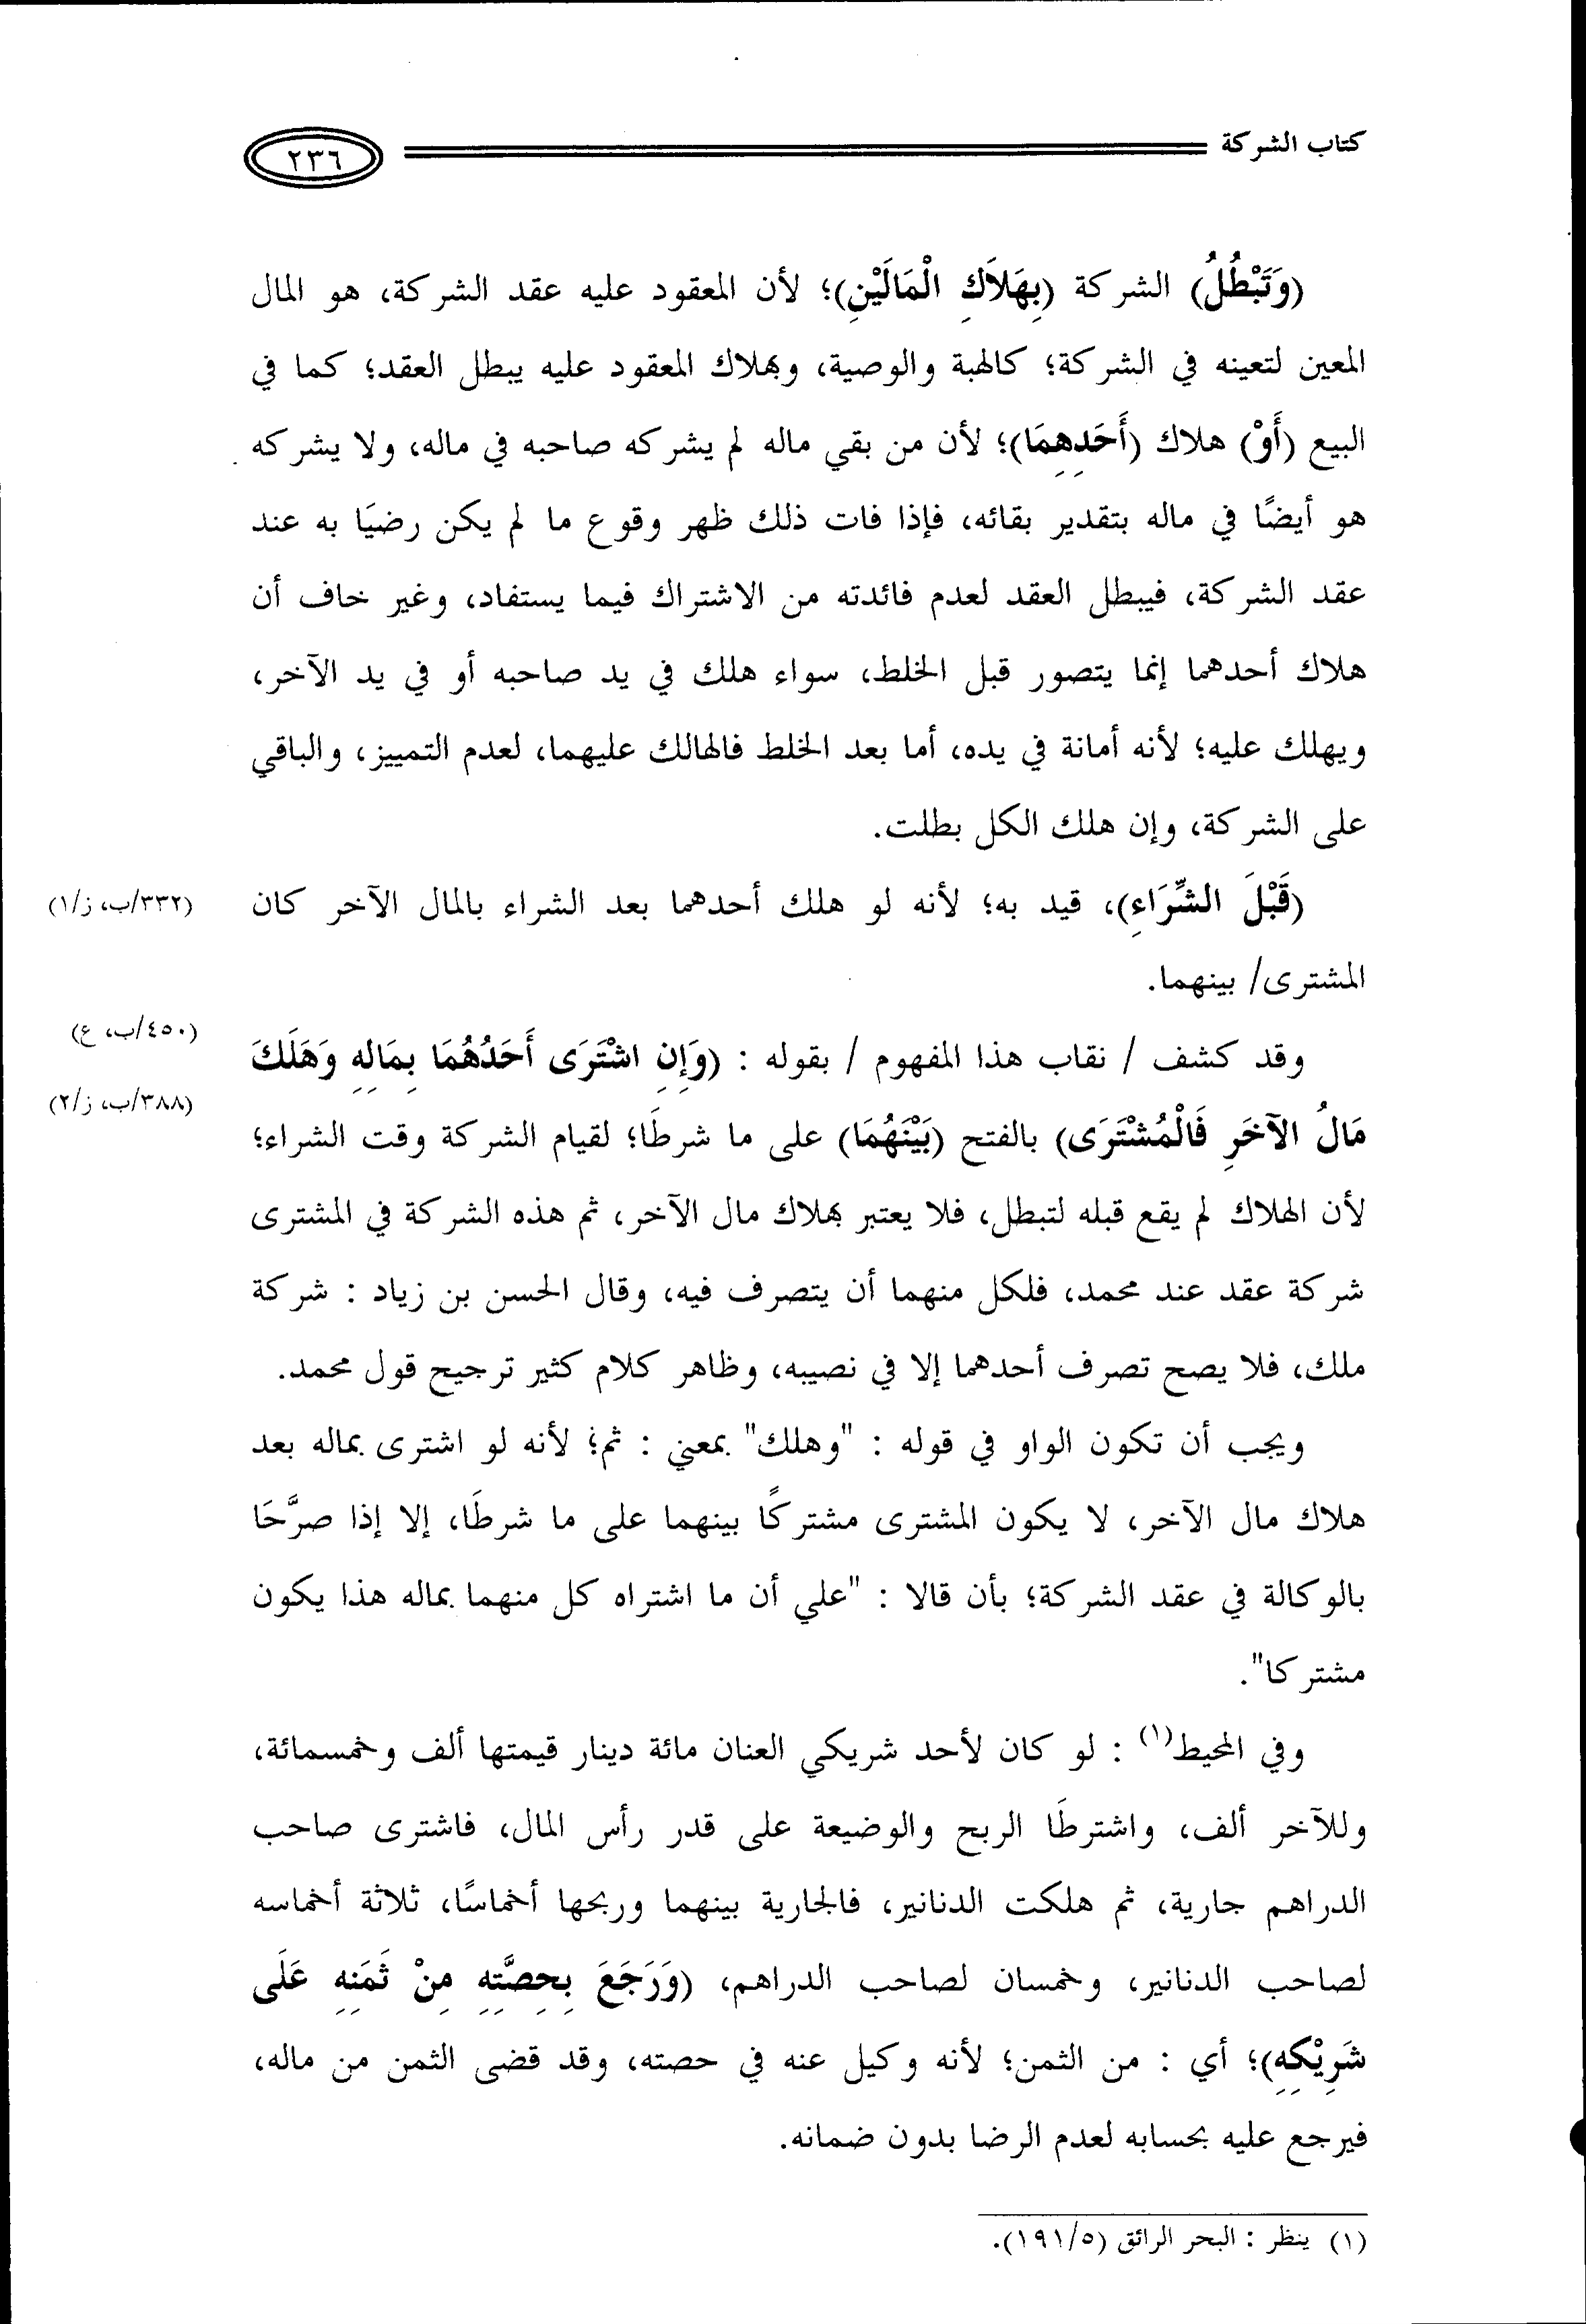 كتاب الشركة
٢٣٦
(وَتَبْطُلُ) الشركة (بِهَلاَكِ الْمَالَيْنِ)؛ لأن المعقود عليه عقد الشركة، هو المال
المعين لتعينه في الشركة؛ كالهبة والوصية، وبهلاك المعقود عليه يبطل العقد؛ كما في
البيع (أَوْ) هلاك (أَحَدِهِمَا)؛ لأن من بقي ماله لم يشركه صاحبه في ماله، ولا يشركه
هو أيضًا في ماله بتقدير بقائه، فإذا فات ذلك ظهر وقوع ما لم يكن رضيَا به عند
عقد الشركة، فيبطل العقد لعدم فائدته من الاشتراك فيما يستفاد، وغير خاف أن
هلاك أحدهما إنما يتصور قبل الخلط، سواء هلك في يد صاحبه أو في يد الآخر،
ويهلك عليه؛ لأنه أمانة في يده، أما بعد الخلط فالهالك عليهما، لعدم التمييز، والباقي
على الشركة، وإن هلك الكل بطلت.
(قَبْلَ الشِّرَاءِ)، قيد به؛ لأنه لو هلك أحدهما بعد الشراء بالمال الآخر كان
(٣٣٢/ب، ز/١)
المشترى/ بينهما.
(٤٥٠/ب، ع)
وقد كشف / نقاب هذا المفهوم / بقوله : (وَإِنِ اشْتَرَى أَحَدُهُمَا بِمَالِهِ وَهَلَكَ
(٣٨٨/ب، ز/٢)
مَالُ الآخَرِ فَالْمُشْتَرَى) بالفتح (بَيْنَهُمَا) على ما شرطَا؛ لقيام الشركة وقت الشراء؛
لأن الهلاك لم يقع قبله لتبطل، فلا يعتبر بهلاك مال الآخر، ثم هذه الشركة في المشترى
شركة عقد عند محمد، فلكل منهما أن يتصرف فيه، وقال الحسن بن زياد : شركة
ملك، فلا يصح تصرف أحدهما إلا في نصيبه، وظاهر كلام كثير ترجيح قول محمد.
ويجب أن تكون الواو في قوله : "وهلك" بمعني : ثم؛ لأنه لو اشترى بماله بعد
هلاك مال الآخر، لا يكون المشترى مشتركًا بينهما على ما شرطَا، إلا إذا صرَّحَا
بالوكالة في عقد الشركة؛ بأن قالا : "علي أن ما اشتراه كل منهما بماله هذا يكون
مشتركا".
وفي المحيط(١) : لو كان لأحد شريكي العنان مائة دينار قيمتها ألف وخمسمائة،
وللآخر ألف، واشترطَا الربح والوضيعة على قدر رأس المال، فاشترى صاحب
الدراهم جارية، ثم هلكت الدنانير، فالجارية بينهما وربحها أخماسًا، ثلاثة أخماسه
لصاحب الدنانير، وخمسان لصاحب الدراهم، (وَرَجَعَ بِحِصَّتِهِ مِنْ ثَمَنِهِ عَلَى
شَرِيْكِهِ)؛ أي : من الثمن؛ لأنه وكيل عنه في حصته، وقد قضى الثمن من ماله،
فيرجع عليه بحسابه لعدم الرضا بدون ضمانه.
(١) ينظر : البحر الرائق (١٩١/٥).